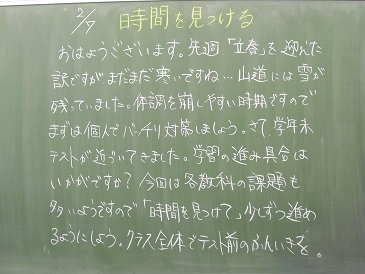 2/7 時間を見つける
おはようございます。先週「立春」を迎えた
訳ですがまだまだ寒いですね…山道には雪が
残っていました。体調を崩しやすい時期ですので
まずは個人でバッチリ対策しましょう。さて、学年末
テストが近づいてきました。学習の進み具合は
いかがですか?今回は各教科の課題も
多いようですので「時間を見つけて」少しずつ進め
るようにしよう。クラス全体でテスト前のふんいきを。